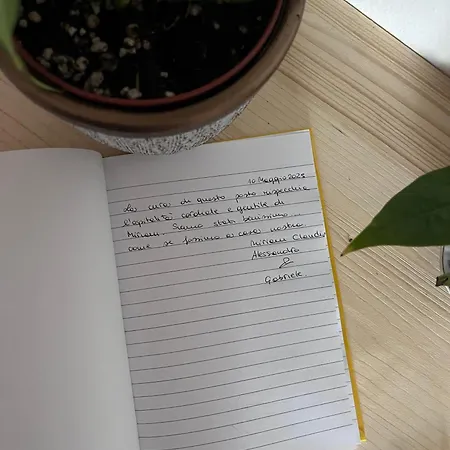 10 Maggio 2023
La cura di questo posto rispecchia
l'ospitalità cordiale e gentile di
Miriam. Siamo stati benissimo...
come se fossimo a casa nostra
Miriam Claudio
Alessandra
&
Gabriele